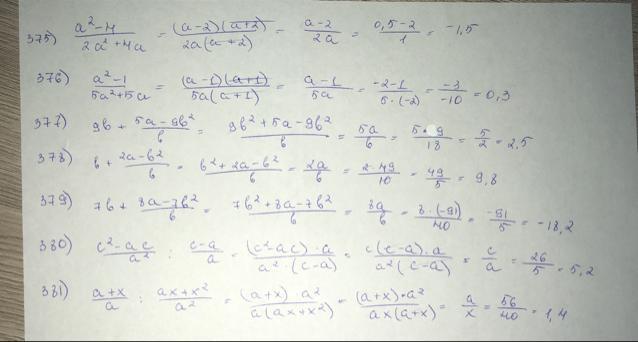 375) (a²-4)/(2a²+4a) = ((a-2)(a+2))/(2a(a+2)) = (a-2)/(2a) = (0,5-2)/1 = -1,5
376) (a²-1)/(5a²+5a) = ((a-1)(a+1))/(5a(a+1)) = (a-1)/(5a) = (-2-1)/(5·(-2)) = (-3)/(-10) = 0,3
377) 9b + (5a-9b²)/b = (9b²+5a-9b²)/b = (5a)/b = (5·9)/18 = 5/2 = 2,5
378) b + (2a-b²)/b = (b²+2a-b²)/b = (2a)/b = (2·49)/10 = 49/5 = 9,8
379) 7b + (8a-7b²)/b = (7b²+8a-7b²)/b = (8a)/b = (8·(-91))/40 = (-91)/5 = -18,2
380) (c²-ac)/(a²) : (c-a)/a = ((c²-ac)·a)/(a²·(c-a)) = (c(c-a)·a)/(a²(c-a)) = c/a = 26/5 = 5,2
381) (a+x)/a : (ax+x²)/(a²) = ((a+x)·a²)/(a(ax+x²)) = ((a+x)·a²)/(ax(a+x)) = a/x = 56/40 = 1,4